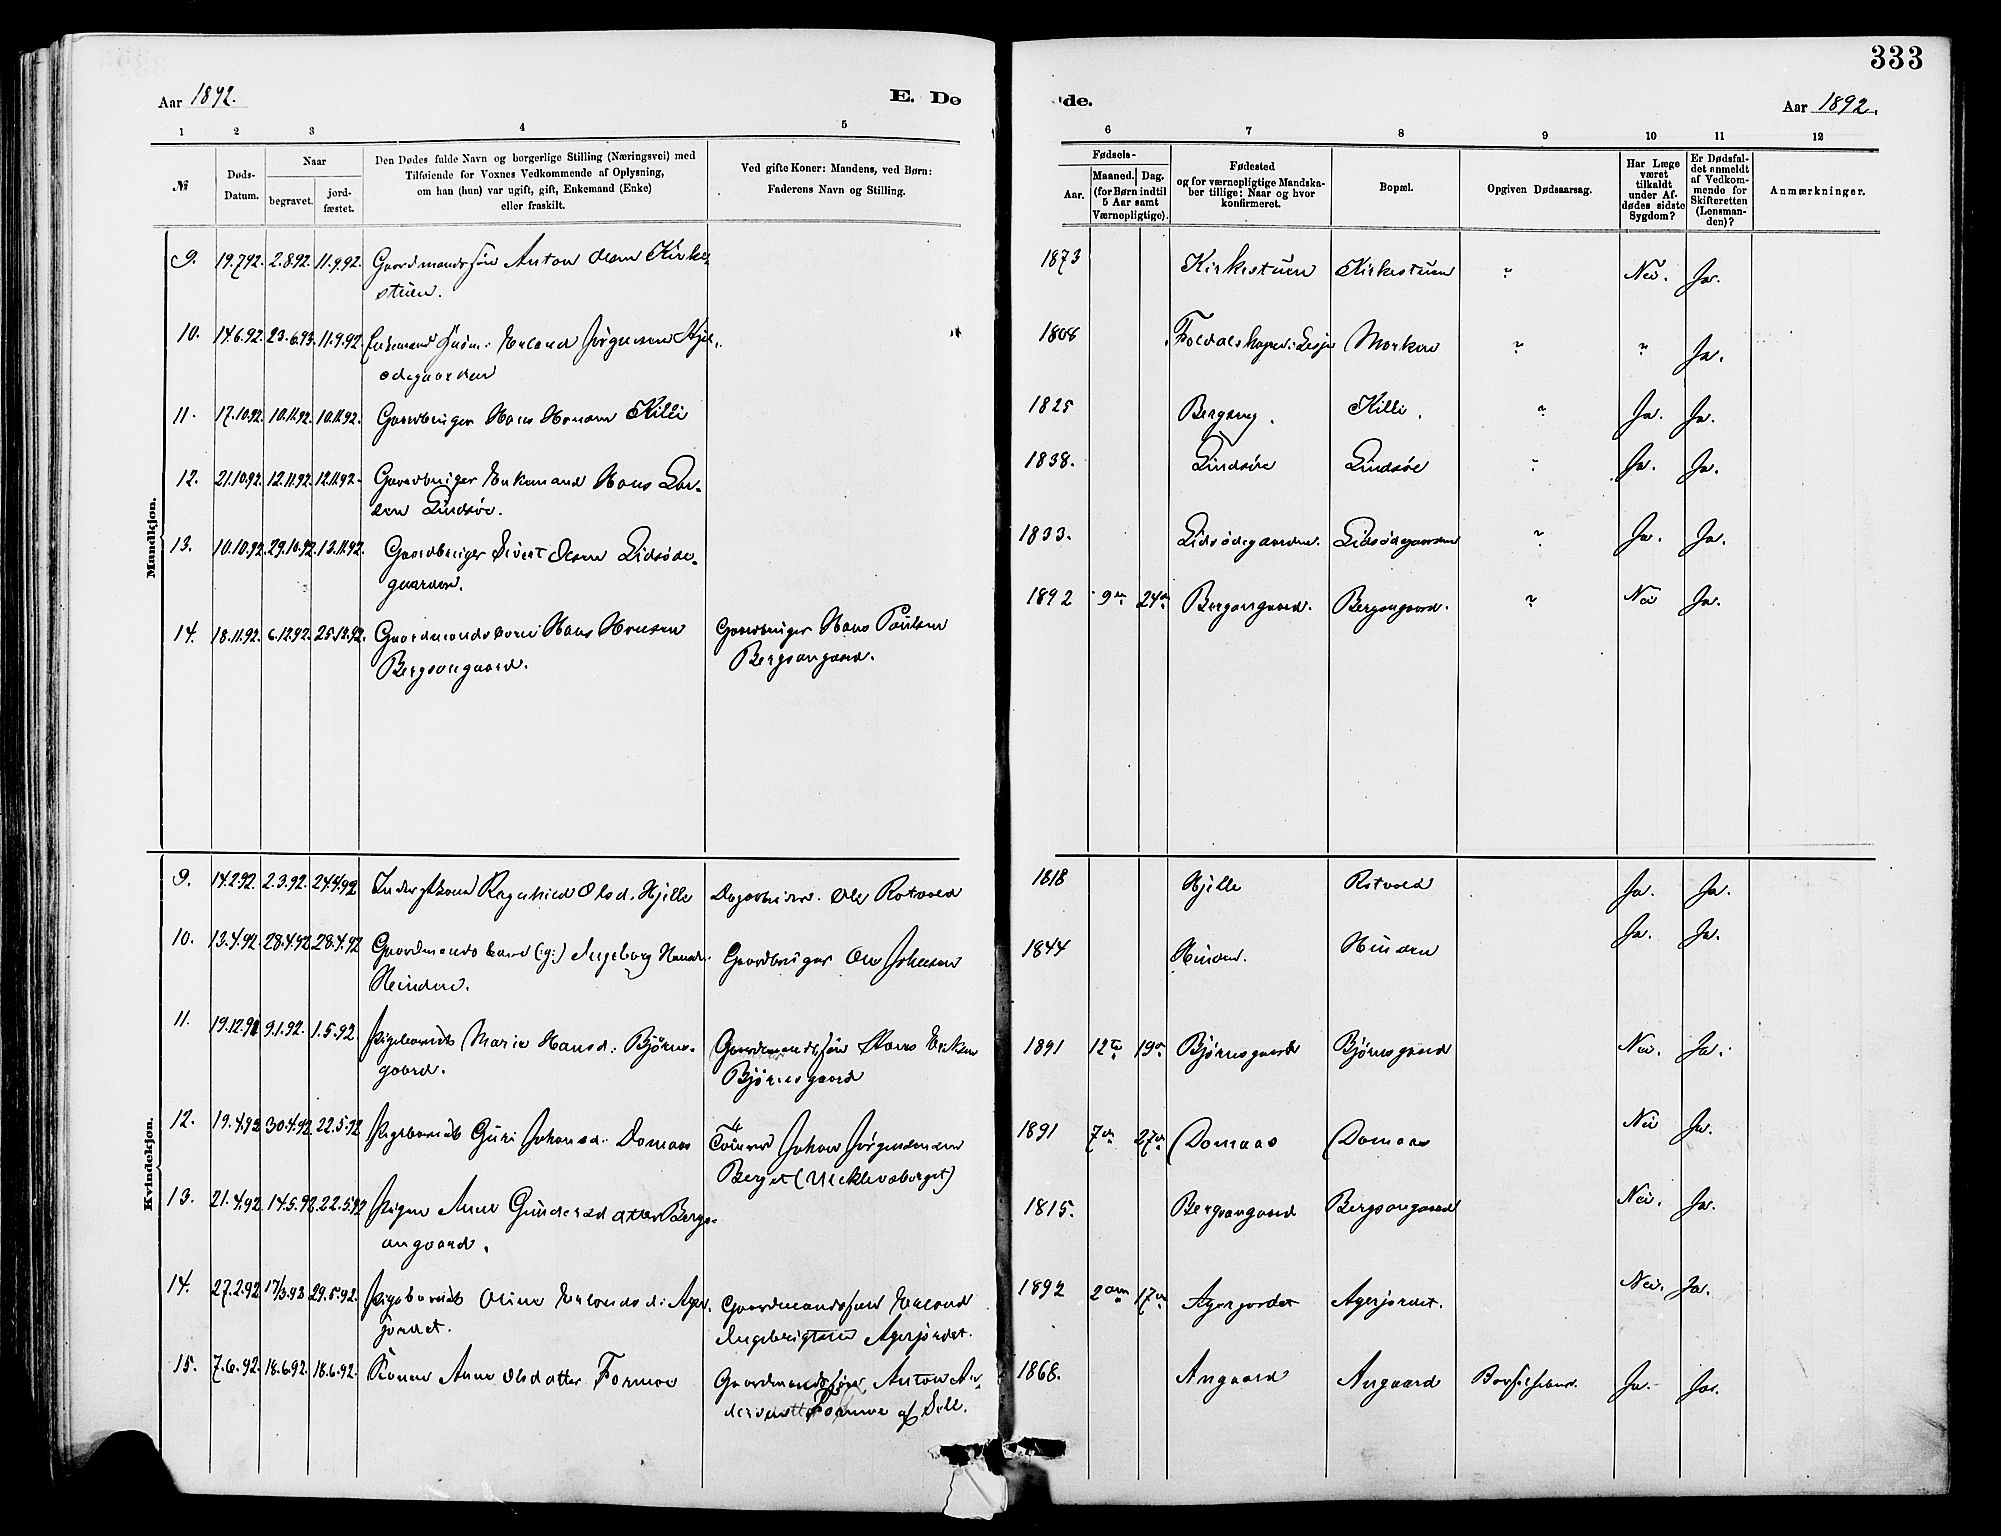 333
Aar 1892.
E. Dø
de.
Aar 1892.
1 2 3 4 5 6 7 8 9 10 11 12
№
Døds-
Datum.
Naar
begravet.
jord-
fæstet.
Den Dødes fulde Navn og borgerlige Stilling (Næringsvei) med
Tilføiende for Voxnes Vedkommende af Oplysning,
om han (hun) var ugift, gift, Enkemand (Enke)
eller fraskilt.
Ved gifte Koner: Mandens, ved Børn:
Faderens Navn og Stilling.
Fødsels-
Aar.
Maaned. Dag.
(for Børn indtil
5 Aar samt
Værnepligtige).
Fødested
og for værnepligtige Mandska-
ber tillige: Naar og hvor
konfirmeret.
Bopæl.
Opgiven Dødsaarsag.
Har Læge
været
tilkaldt
under Af-
dødes sidste
Sygdom?
Er Dødsfal-
det anmeldt
af Vedkom-
mende for
Skifteretten
(Lensman-
den)?
Anmærkninger.
Mandkjøn.
9. 19.7.92. 2.8.92. 11.9.92. Gaardmandssøn Anton Olsen Kirke- 1873 Kirkestuen Kirkestuen " Nei. Ja.
stuen.
10. 14.6.92. 23.6.93. 11.9.92. Enkemand Erland Jørgensen 1808 Lesje " " Ja.
ødegaarden
11. 17.10.92. 10.11.92. 10.11.92. Gaardbruger Hans Hansen Killi 1825 Killi. " Ja. Ja.
12. 21.10.92. 12.11.92. 12.11.92. Gaardbruger Enkemand Hans Lar- 1838. Lindsøe Lindsøe " Ja. Ja.
sen Lindsøe.
13. 10.10.92. 29.10.92. 13.11.92. Gaardbruger Sivert Olsen Lidsøde- 1833. Lidsødegaarden. Lidsødegaarden " Ja. Ja.
gaarden.
14. 18.11.92. 6.12.92. 25.12.92. Gaardmandsbarn Hans Hansen Gaardbruger Hans Paulsen 1892 9 24 Bergsangaard. Bergsangaard. " Nei Ja.
Bergsangaard. Bergsangaard.
Kvindekjøn.
9. 14.2.92. 2.3.92. 24.4.92 Ragnhild Olsd. Hjelle Ole Rotvold 1818 Hjelle Rotvold Ja. Ja.
10. 13.4.92. 28.4.92. 28.4.92 Ingeborg Hansd. Gaardbruger Ole Johnsen 1844 Ja. Ja.
11. 19.12.91 9.1.92. 1.5.92 Pigebarnet Marie Hansd: Bjørns- Gaardmandssøn Hans Eriksen 1891 12te 19 Bjørnsgaard Bjørnsgaard Nei. Ja.
gaard. Bjørnsgaard
12. 19.4.92 30.4.92. 22.5.92 Pigebarnet Guri Johansd. Domaas Johan Jørgensen 1891 7 27 Domaas Domaas Nei Ja.
Berget
13. 21.4.92. 14.5.92 22.5.92 Pigen Anne Gundersdatter Bergs- 1815. Bergsangaard Bergsangaard Nei. Ja.
angaard.
14. 27.2.92 17/3.92 29.5.92. Pigebarnet Oline Erlandsd: Ager- Gaardmandssøn Erland 1892 2 17 Agerjordet Agerjordet. Nei. Ja.
jordet. Ingebrigtsen Agerjordet.
15. 7.6.92. 18.6.92. 18.6.92. Konen Anne Olsdatter Formoe Gaardmandssøn Anton 1868. Angaard Angaard Ja. Ja.
Formoe af Sell.